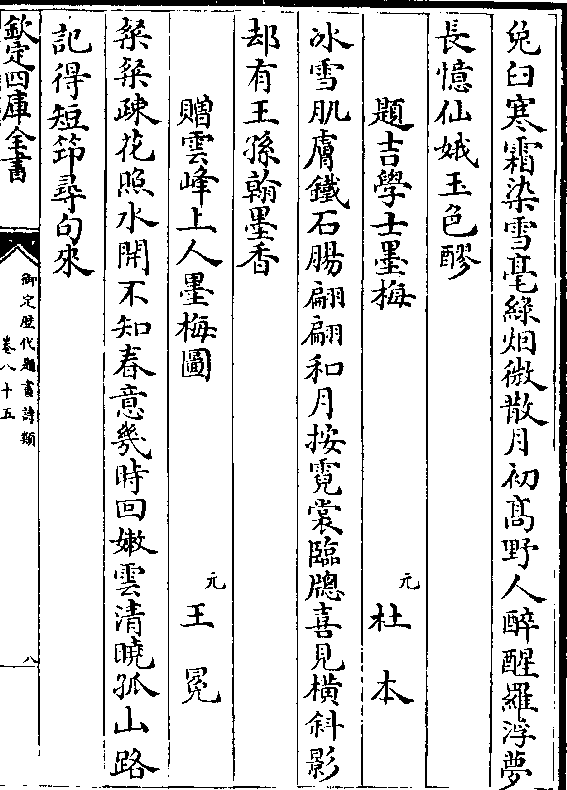 兔臼寒霜染雪毫綠烟微散月初髙野人醉醒羅浮夢
長憶仙娥玉色醪
題吉學士墨梅
元 杜本
冰雪肌膚鐵石腸翩翩和月按霓裳臨牕喜見橫斜影
却有王孫翰墨香
贈雲峰上人墨梅圖
元 王冕
粲粲疎花照水開不知春意幾時回嫩雲清曉孤山路
記得短筇尋句來
欽定四庫全書
御定歴代題畫詩類
卷八十五
八